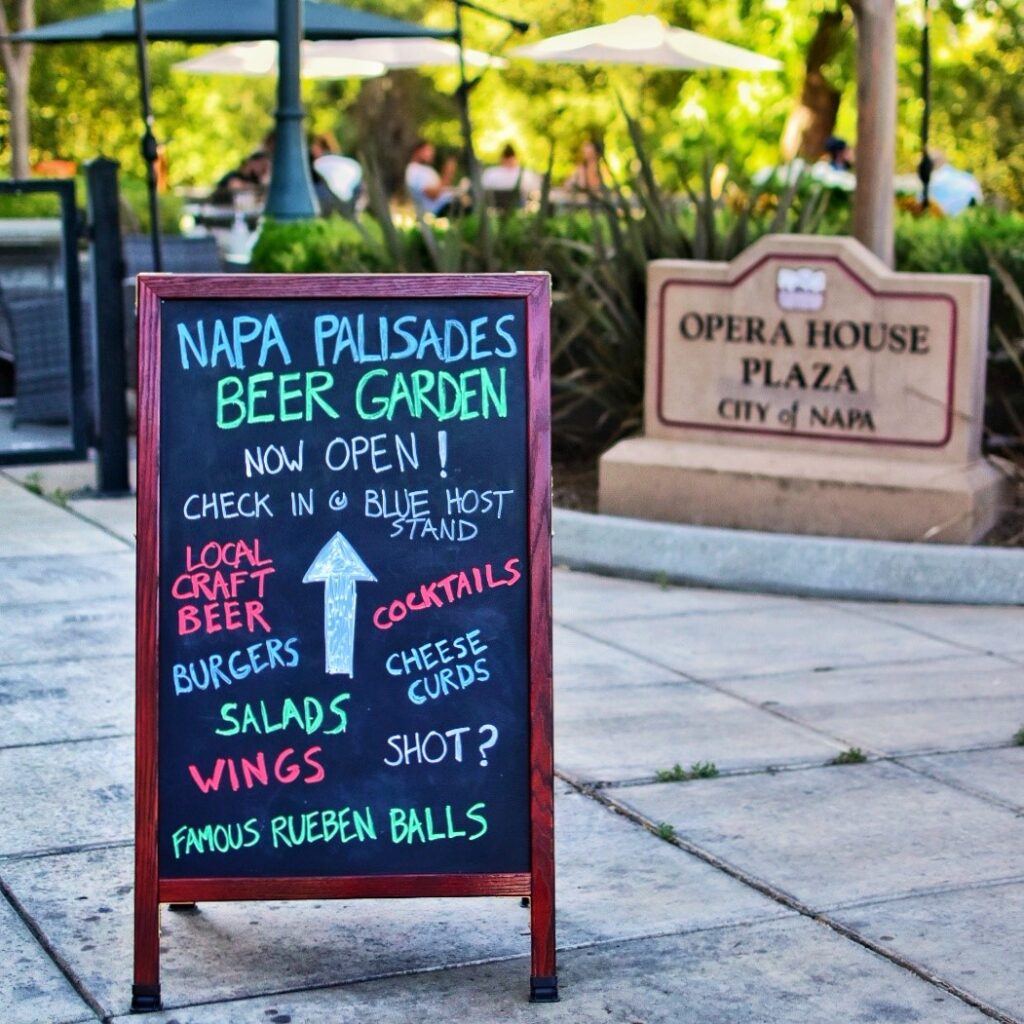 NAPA PALISADES
BEER GARDEN
NOW OPEN!
CHECK IN @ BLUE HOST
STAND
LOCAL
CRAFT
BEER
COCKTAILS
BURGERS
CHEESE
CURDS
SALADS
WINGS
SHOT?
FAMOUS RUEBEN BALLS
OPERA HOUSE
PLAZA
CITY of NAPA